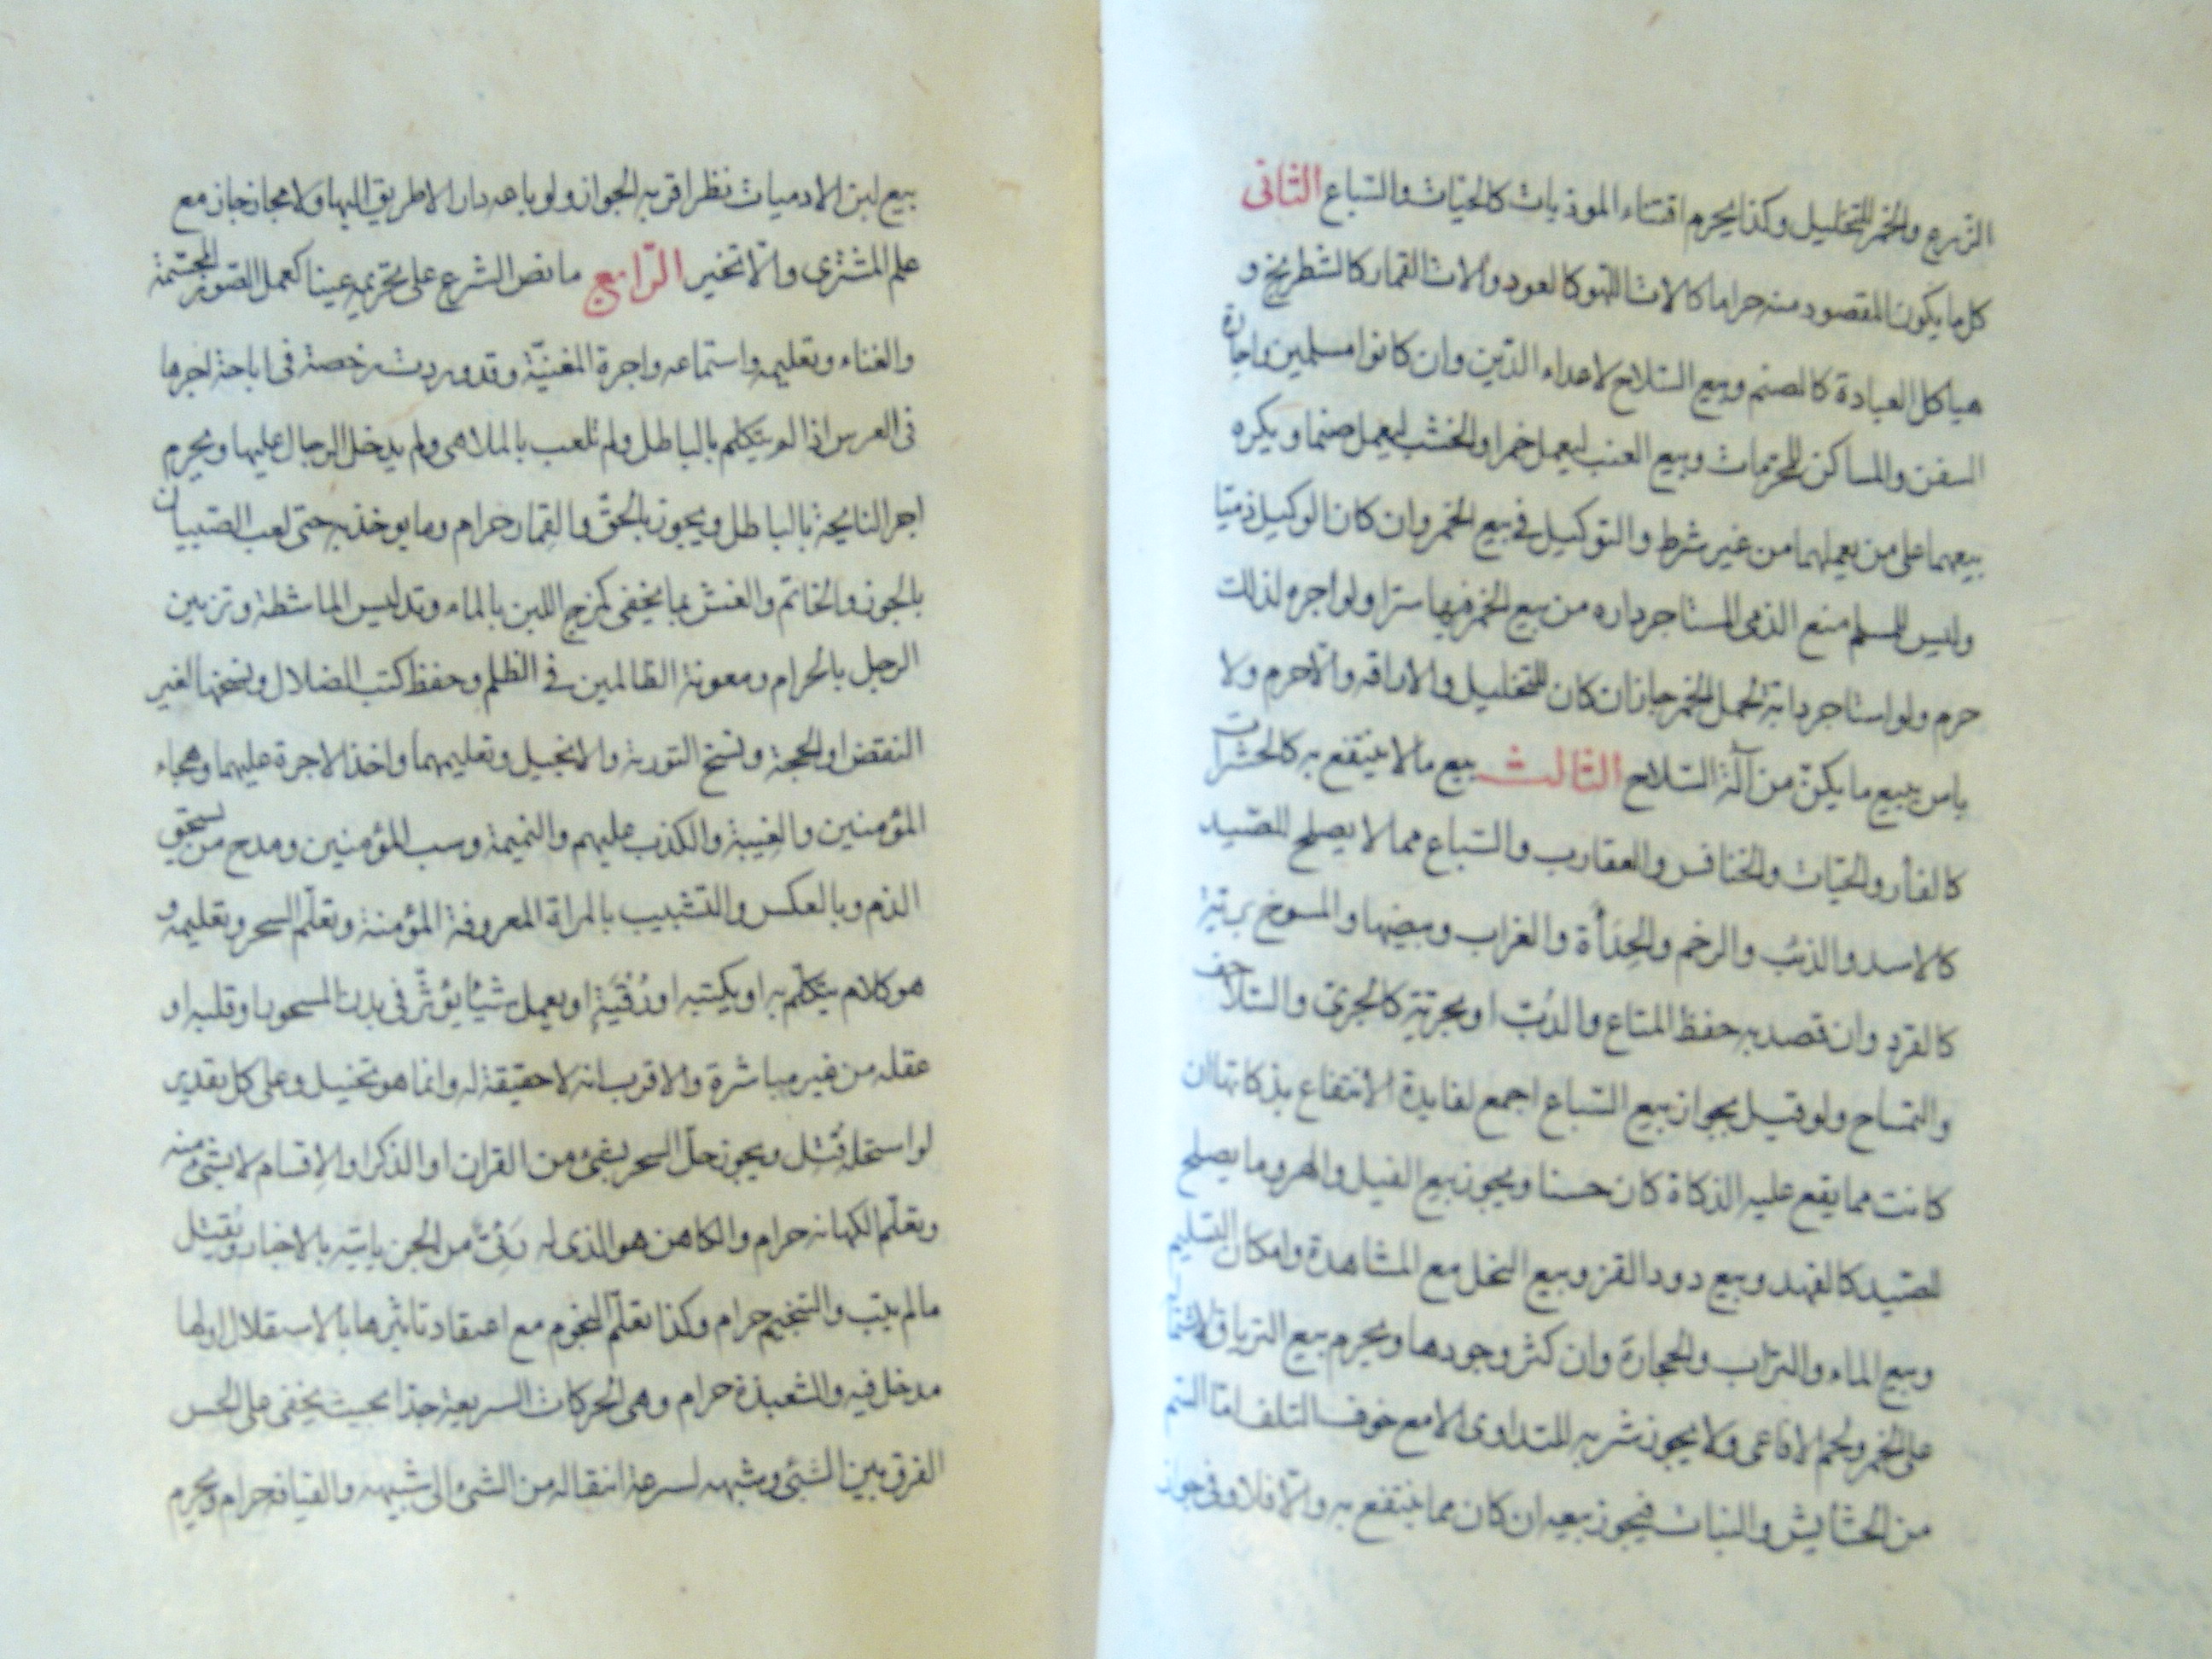 الزرع والخمر للتخليل وكذا يحرم اقتناء الموذيات كالحيّات والسّباع الثانى
كل ما يكون المقصود منه حراما كالات اللهو كالعود والات القمار كالشطرنج و
هياكل العبادة كالصنم وبيع السّلاح لاعداء الدّين وان كانوا مسلمين واجارة
السفن والمساكن للمحرّمات وبيع العنب ليعمل خمرا والخشب ليعمل صنما ويكره
بيعهما على من يعملهما من غير شرط والتوكيل فى بيع الخمر وان كان الوكيل ذميّا
وليس للمسلم منع الذمى المستاجر داره من بيع الخمر فيها سترا ولو آجره لذلك
حرم ولو استاجر دابّة لحمل الخمر جاز ان كان للتخليل والاراقه والّا حرم ولا
باس ببيع ما يكنّ من آلة السّلاح الثالث بيع ما لا ينتفع به كالحشرات
كالفأر والحيّات والخنافس والعقارب والسّباع مما لا يصلح للصّيد
كالاسد والذئب والرخم والحِدَأة والغراب وبيضها والمسوخ بريّة
كالقرد وان قصد به حفظ المتاع والدُبّ او بحريّة كالجُرىّ والسّلاحف
والتمساح ولو قيل بجواز بيع السّباع اجمع لفايدة الانتفاع بذكاتها ان
كانت مما يقع عليه الذكاة كان حسنا ويجوز بيع الفيل والهر وما يصلح
للصّيد كالفهد وبيع دود القز وبيع النحل مع المشاهدة وامكان التسليم
وبيع الماء والترّاب والحجارة وان كثر وجودها ويحرم بيع الترياق لاشتماله
على الخمر ولحم الافاعى ولا يجوز شربه للتداوى الا مع خوف التلف امّا السّم
من الحشايش والنبات فيجوز بيعه ان كان مما ينتفع به والّا فلا وفى جواز
بيع لبن الادميات نظر اقربه الجواز ولو باعه دارا لا طريق اليها ولا مجاز جاز مع
علم المشترى والّا تخير الرّابع ما نص الشرع على تحريمه عينا كعمل الصّور المجسّمة
والغناء وتعليمه واستماعه واجرة المغنيّة وقد وردت رخصة فى اباحة اجرها
فى العرس اذا لم يتكلم بالباطل ولم تلعب بالملاهى ولم يدخل الرجال عليها ويحرم
اجر النايحة بالباطل ويجوز بالحقّ والقمار حرام وما يوخذ به حتى لعب الصّبيان
بالجوز والخاتم والغش بما يخفى كمزج اللبن بالماء وتدليس الماشطة وتزيين
الرجل بالحرام ومعونة الظالمين فى الظلم وحفظ كتب الضلال ونسخها لغير
النقض او الحجة ونسخ التورية والانجيل وتعليمهما واخذ الاجرة عليهما وهجاء
المؤمنين والغِيبة والكذب عليهم والنميمة وسب المؤمنين ومدح من يستحق
الذم وبالعكس والتشبيب بالمراة المعروفة المؤمنة وتعلّم السحر وتعليمه و
هو كلام يتكلّم به او يكتبه او رُقْيَةٍ او يعمل شيئا يؤثّر فى بدن المسحور او قلبه او
عقله من غير مباشرة والاقرب انه لا حقيقة له وانما هو تخييل وعلى كل تقدير
لو استحله قُتِل ويجوز حلّ السحر بشئ من القران او الذكر او الاقسام لا بشئ منه
وتعلّم الكهانه حرام والكاهن هو الذى له رَئِىٌّ من الجن ياتيه بالاخبار ويُقتل
ما لم يتب والتنجيم حرام وكذا تعلّم النجوم مع اعتقاد تاثيرها بالاستقلال او لها
مدخل فيه والشعبذة حرام وهى الحركات السريعة جدّا بحيث يخفى على الحس
الفرق بين الشئ وشبهه لسرعة انتقاله من الشئ الى شبهه والقيافه حرام ويحرم